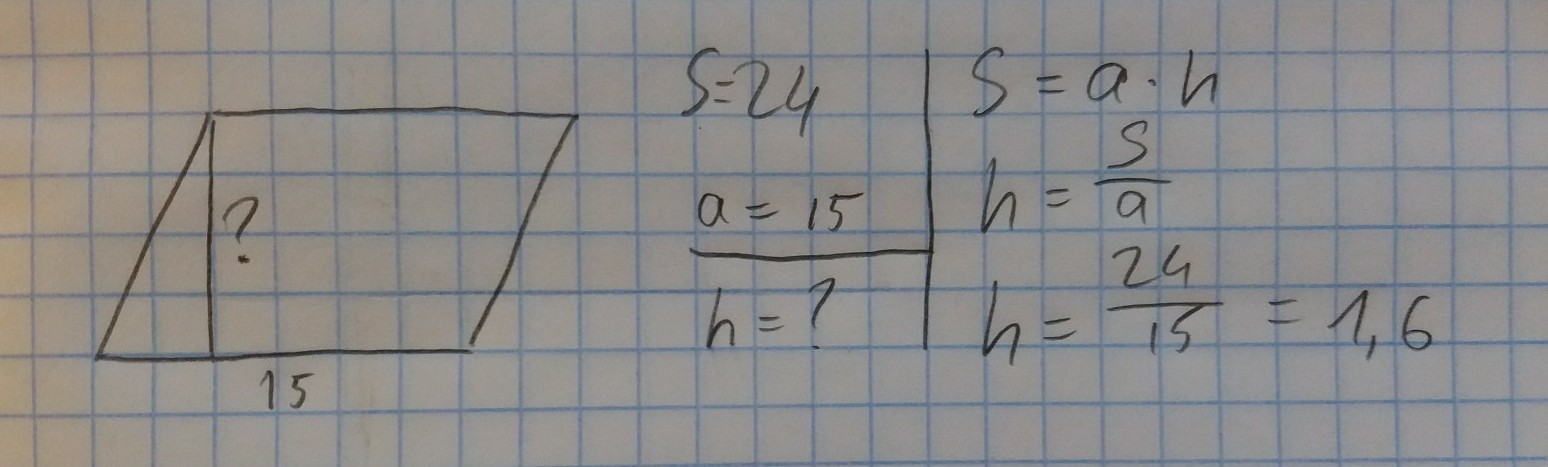 ?
15
S=24
a = 15
h = ?
S = a · h
h = S/a
h = 24/15 = 1,6